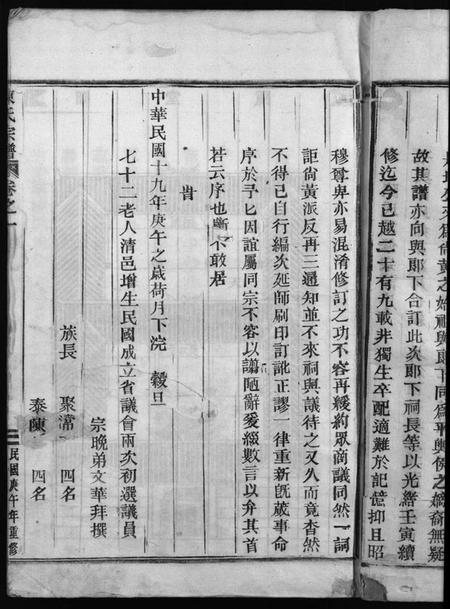 故其譜亦向與郎下合訂此次郎下祠長等以光緒壬寅續
修迄今已越二十有九載非獨生卒配適難於記憶抑且昭
穆尊卑亦易混淆修訂之功不容再緩約眾商議同然一詞
詎尚黃派反再三通知並不來祠與議待之又久而竟杳然
不得已自行編次延師刷印訂訛正謬一律重新既蕆事命
序於予匕因誼屬同宗不容以譾陋辭爰綴數言以弁其首
若云序也斷不敢居
旹
中華民國十九年庚午之歲荷月下浣 穀旦
七十二老人清邑增生民國成立省議會兩次初選議員
宗晚弟文華拜撰
族長 聚 四名
泰 四名
氏宗譜 卷之一
民國庚午年重修